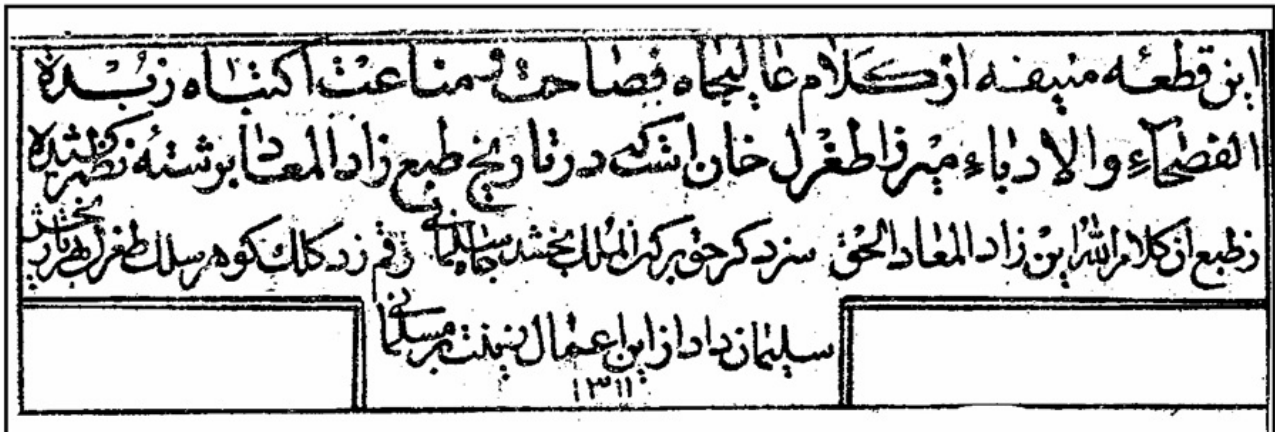 این قطعهٔ منیفه از کلام عالیجاه فصاحت و مناعت اکتباه زبدة
الفصحاء والادباء میرزا طغرل خان است که در تاریخ طبع زاد المعاد برشته نظم
زطبع از کلام الله این زاد المعاد الحق سزد کر حق بر کنز الملک بخشد جاه سلیمانی رقم زد کلک کوهر سلک طغرل بهر تاریخش
سلیمان داد از این اعمال زینت بر مسلمانی
۱۳۱۱